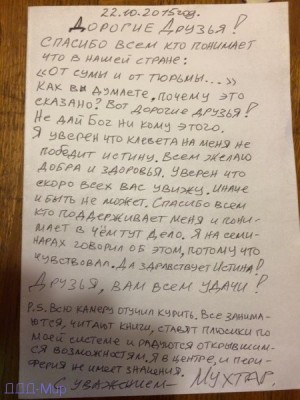 22.10.2015год.
ДОРОГИЕ ДРУЗЬЯ!
СПАСИБО ВСЕМ КТО ПОНИМАЕТ
ЧТО В НАШЕЙ СТРАНЕ:
«ОТ СУМЫ И ОТ ТЮРЬМЫ...»
КАК ВЫ ДУМАЕТЕ, ПОЧЕМУ ЭТО
СКАЗАНО? ВОТ ДОРОГИЕ ДРУЗЬЯ!
НЕ ДАЙ БОГ НИ КОМУ ЭТОГО.
Я УВЕРЕН ЧТО КЛЕВЕТА НА МЕНЯ НЕ
ПОБЕДИТ ИСТИНУ. ВСЕМ ЖЕЛАЮ
ДОБРА И ЗДОРОВЬЯ. УВЕРЕН ЧТО
СКОРО ВСЕХ ВАС УВИЖУ. ИНАЧЕ
И БЫТЬ НЕ МОЖЕТ. СПАСИБО ВСЕМ
КТО ПОДДЕРЖИВАЕТ МЕНЯ И ПОНИ-
МАЕТ В ЧЁМ ТУТ ДЕЛО. Я НА СЕМИ-
НАРАХ ГОВОРИЛ ОБ ЭТОМ, ПОТОМУ ЧТО
ЧУВСТВОВАЛ. ДА ЗДРАВСТВУЕТ ИСТИНА!
ДРУЗЬЯ, ВАМ ВСЕМ УДАЧИ!
P.S. ВСЮ КАМЕРУ ОТУЧИЛ КУРИТЬ. ВСЕ ЗАНИМА-
ЮТСЯ, ЧИТАЮТ КНИГИ, СТАВЯТ ПЛЮСИКИ ПО
МОЕЙ СИСТЕМЕ И РАДУЮТСЯ ОТКРЫВШИМ-
СЯ ВОЗМОЖНОСТЯМ. Я В ЦЕНТРЕ, И ПЕРИ-
ФЕРИЯ НЕ ИМЕЕТ ЗНАЧЕНИЯ.
С УВАЖЕНИЕМ — МУХТАР.
ДДД-Мир